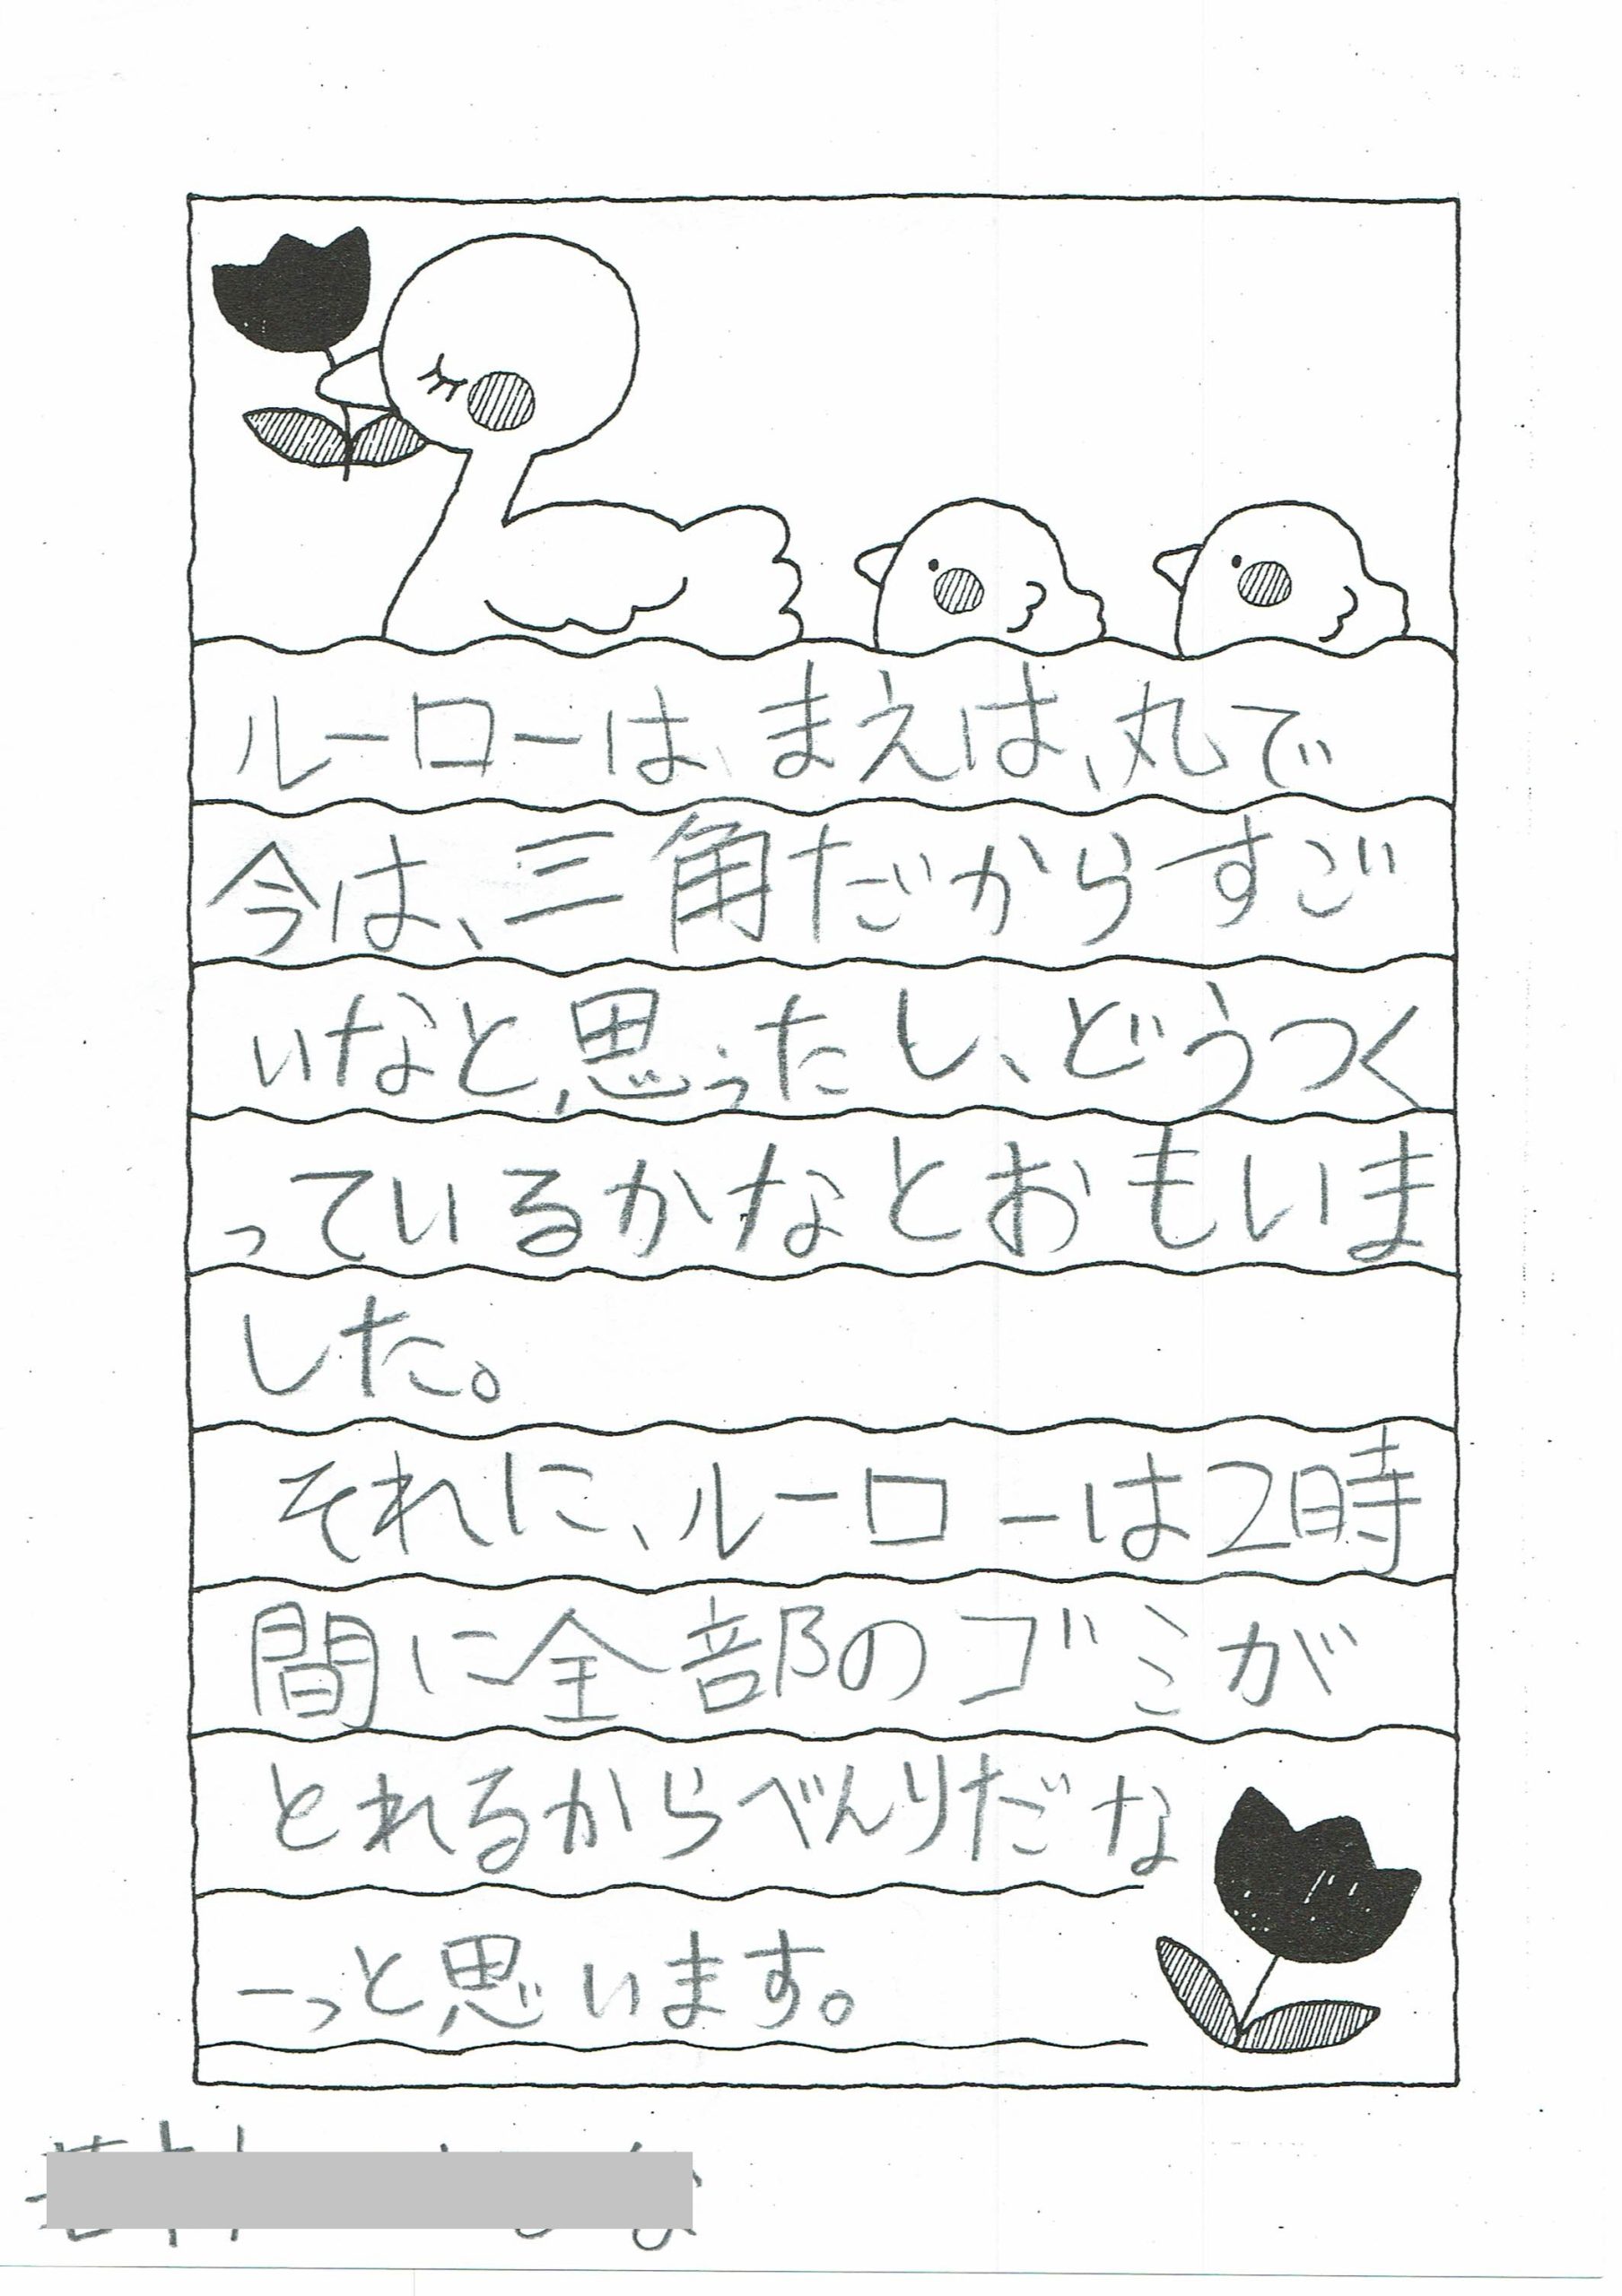 ルーローは、まえは、丸で
今は、三角だからすご
いなと、思ったし、どうつく
っているかなとおもいま
した。
それに、ルーローは2時
間に全部のゴミが
とれるからべんりだな
ーっと思います。